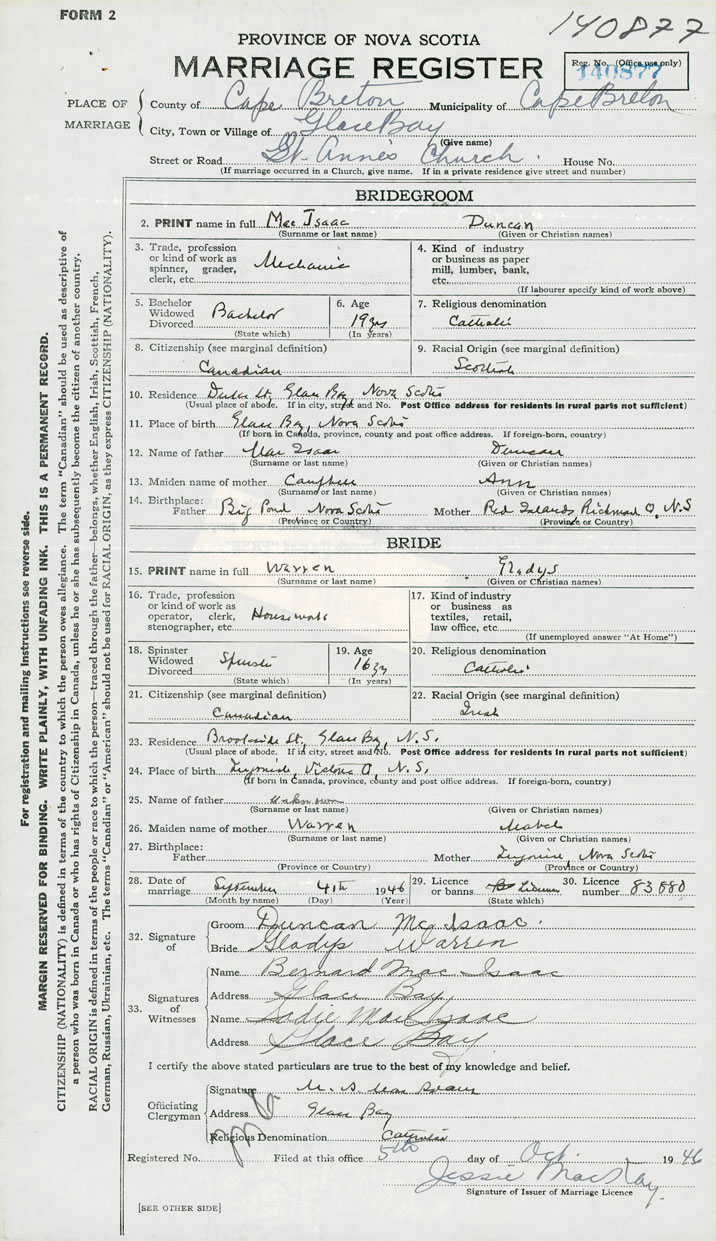 FORM 2
140877
PROVINCE OF NOVA SCOTIA
MARRIAGE REGISTER
Reg. No. (Office use only)
140877
PLACE OF MARRIAGE
County of Cape Breton Municipality of Cape Breton
City, Town or Village of Glace Bay
(Give name)
Street or Road St. Anne's Church. House No.
(If marriage occurred in a Church, give name. If in a private residence give street and number)
BRIDEGROOM
2. PRINT name in full Mac Isaac Duncan
(Surname or last name) (Given or Christian names)
3. Trade, profession or kind of work as spinner, grader, clerk, etc. Mechanic
4. Kind of industry or business as paper mill, lumber, bank, etc.
(If labourer specify kind of work above)
5. Bachelor Widowed Divorced Bachelor
(State which)
6. Age 19 yrs
(In years)
7. Religious denomination
Catholic
8. Citizenship (see marginal definition)
Canadian
9. Racial Origin (see marginal definition)
Scottish
10. Residence St, Glace Bay, Nova Scotia
(Usual place of abode. If in city, street and No. Post Office address for residents in rural parts not sufficient)
11. Place of birth Glace Bay, Nova Scotia
(If born in Canada, province, county and post office address. If foreign-born, country)
12. Name of father Mac Isaac Duncan
(Surname or last name) (Given or Christian names)
13. Maiden name of mother Campbell Ann
(Surname or last name) (Given or Christian names)
14. Birthplace:
Father Big Pond Nova Scotia Mother Red Islands, Richmond Co, N.S
(Province or Country) (Province or Country)
BRIDE
15. PRINT name in full Warren Gladys
(Surname or last name) (Given or Christian names)
16. Trade, profession or kind of work as operator, clerk, stenographer, etc. Housework
17. Kind of industry or business as textiles, retail, law office, etc.
(If unemployed answer "At Home")
18. Spinster Widowed Divorced Spinster
(State which)
19. Age 16 yrs
(In years)
20. Religious denomination
Catholic
21. Citizenship (see marginal definition)
Canadian
22. Racial Origin (see marginal definition)
Irish
23. Residence Brookside St, Glace Bay, N.S.
(Usual place of abode. If in city, street and No. Post Office address for residents in rural parts not sufficient)
24. Place of birth Ingonish, Victoria Co, N.S.
(If born in Canada, province, county and post office address. If foreign-born, country)
25. Name of father unknown
(Surname or last name) (Given or Christian names)
26. Maiden name of mother Warren Mabel
(Surname or last name) (Given or Christian names)
27. Birthplace:
Father Mother Ingonish, Nova Scotia
(Province or Country) (Province or Country)
28. Date of marriage September 4th 1946
(Month by name) (Day) (Year)
29. Licence or banns License
(State which)
30. Licence number 83880
32. Signature of
Groom Duncan Mc Isaac.
Bride Gladys Warren
33. Signatures of Witnesses
Name Bernard Mac Isaac
Address Glace Bay
Name Sadie MacIsaac
Address Glace Bay
I certify the above stated particulars are true to the best of my knowledge and belief.
Officiating Clergyman
Signature M. A. Mac
Address Glace Bay
Religious Denomination Catholic
Registered No. Filed at this office 5th day of Oct. 1946
Jessie MacKay.
Signature of Issuer of Marriage Licence
[SEE OTHER SIDE]
For registration and mailing instructions see reverse side.
MARGIN RESERVED FOR BINDING. WRITE PLAINLY, WITH UNFADING INK. THIS IS A PERMANENT RECORD.
CITIZENSHIP (NATIONALITY) is defined in terms of the country to which the person owes allegiance. The term "Canadian" should be used as descriptive of
a person who was born in Canada or who has rights of Citizenship in Canada, unless he or she has subsequently become the citizen of another country.
RACIAL ORIGIN is defined in terms of the people or race to which the person—traced through the father—belongs, whether English, Irish, Scottish, French,
German, Russian, Ukrainian, etc. The terms "Canadian" or "American" should not be used for RACIAL ORIGIN, as they express CITIZENSHIP (NATIONALITY).